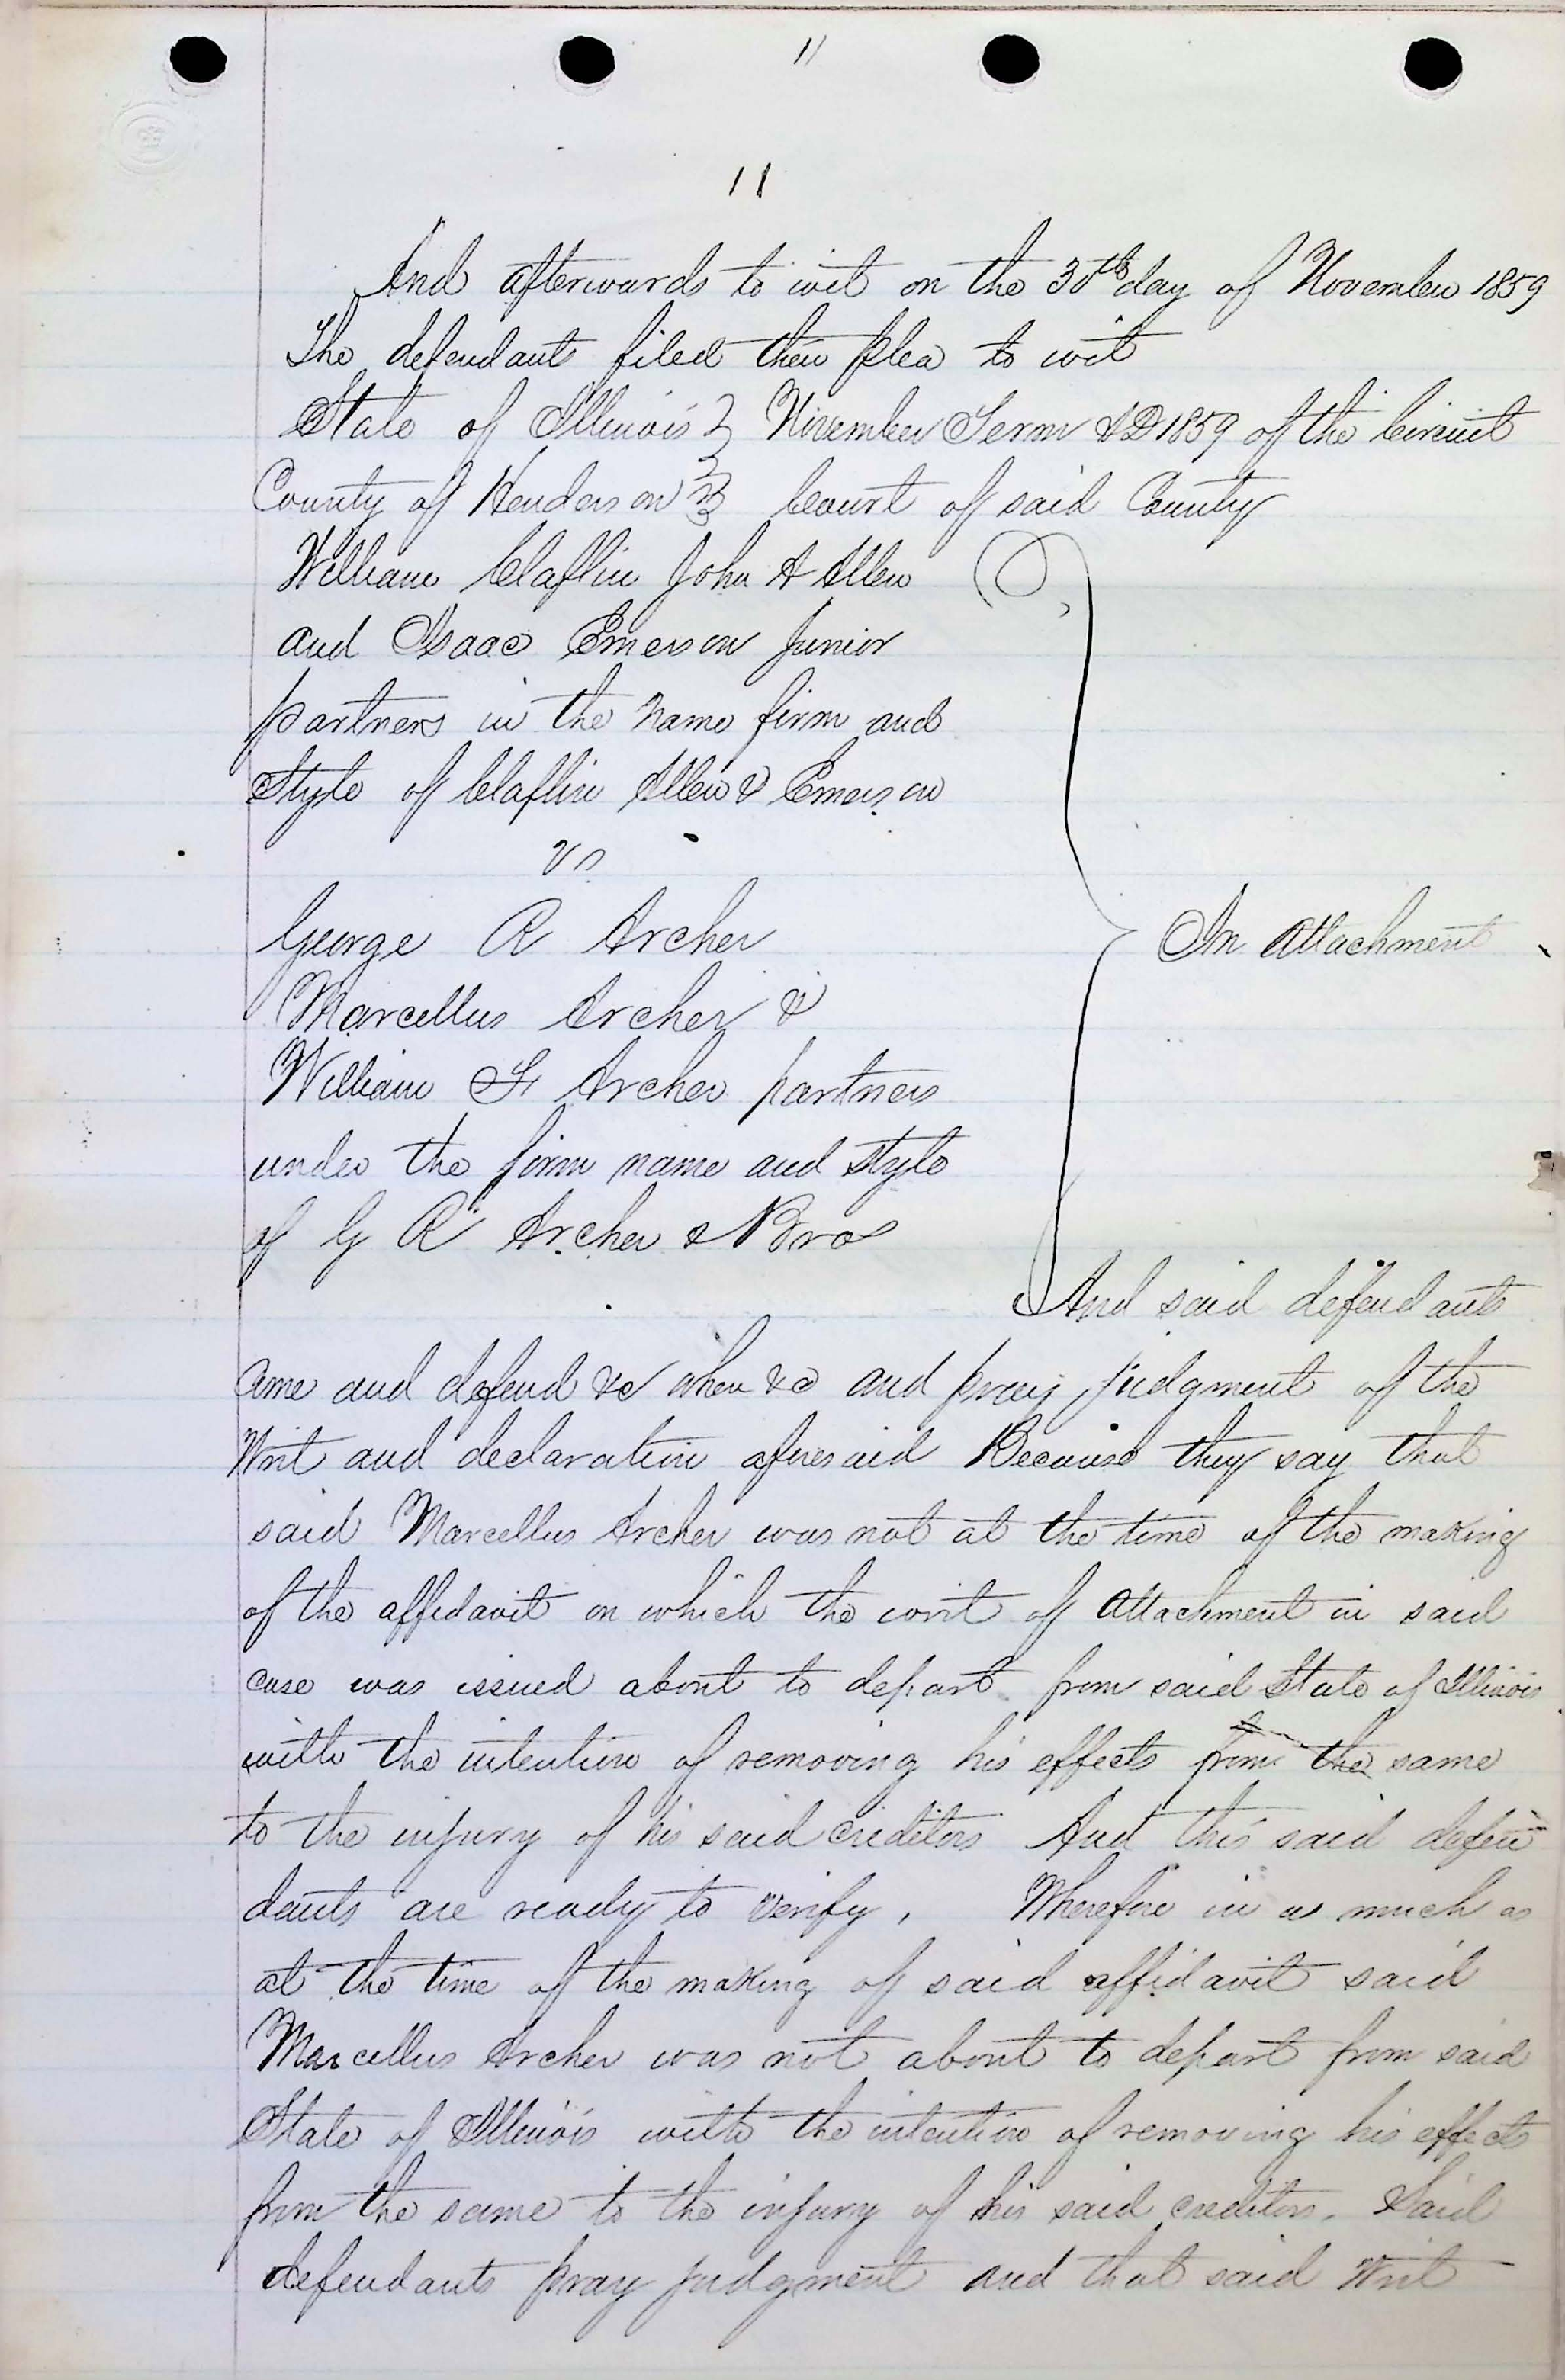 11
11
And afterwards to wit on the 30th day of November 1859
The defendants filed their plea to wit
State of Illinois } November Term AD 1859 of the Circuit
County of Henderson } Court of said County
William Claflin John A Allen
and Isaac Emerson Junior
partners in the name firm and
Style of Claflin Allen & Emerson
vs
George R Archer
In Attachment
Marcellus Archer &
William F Archer partners
under the firm name and style
of G R Archer & Bros
And said defendants
Come and defend &c when &c and pray judgment of the
Writ and declaration aforesaid Because they say that
said Marcellus Archer was not at the time of the making
of the affidavit on which the writ of Attachment in said
case was issued about to depart from said State of Illinois
with the intention of removing his effects from the same
to the injury of his said creditors And this said defen
dants are ready to verify, Wherefore in as much as
at the time of the making of said affidavit said
Marcellus Archer was not about to depart from said
State of Illinois with the intention of removing his effects
from the same to the injury of his said creditors. Said
defendants pray judgment and that said Writ